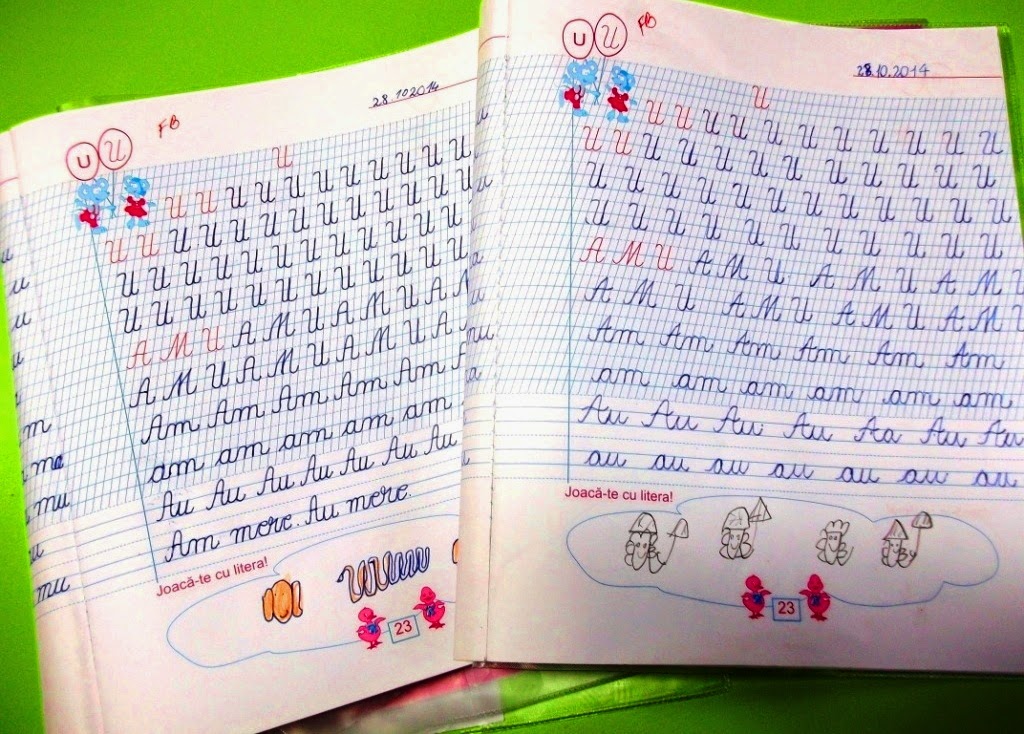 u U FB 28.10 2014
U
U U U U U U U U U U U
U U U U U U U U U U U U
U U U U U U U U U U U U
U U U U U U U U U U U U
A M U A M U A M U A M
A M U A M U A M U A M
Am Am Am Am
am am am am am
Au Au Au Au Au Au
Am mere. Au mere.
Joacă-te cu litera!
23
u U FB 28.10.2014
U
U U U U U U U U U U U
U U U U U U U U U U U U
U U U U U U U U U U U U
U U U U U U U U U U U
A M U A M U A M U A M
A M U A M U A M U A M U
Am Am Am Am Am Am
am am am am am am
Au Au Au Au Aa Au Au
au au au au au au au
Joacă-te cu litera!
23